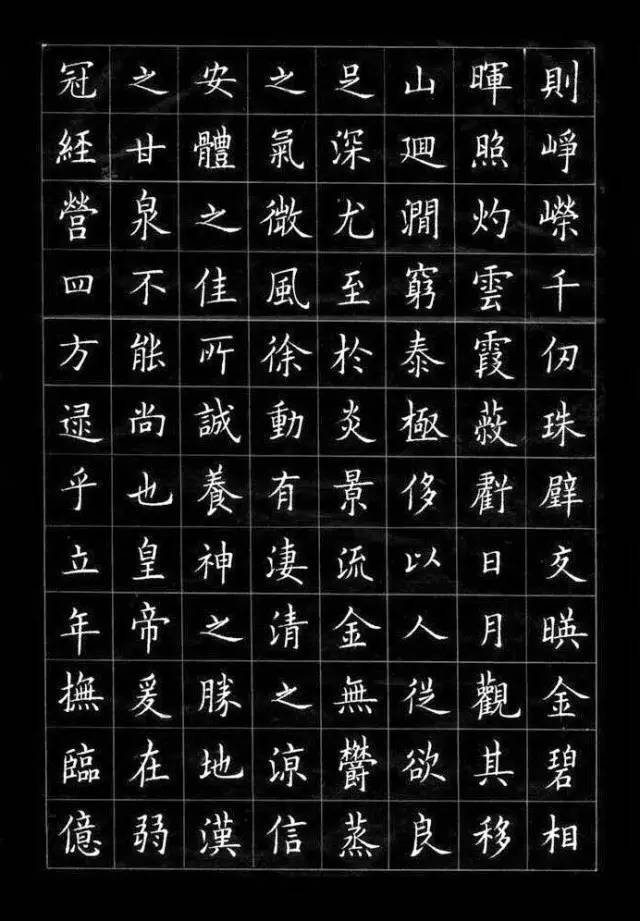 則崢嶸千仞珠壁交暎金碧相
暉照灼雲霞蔽虧日月觀其移
山迴澗窮泰極侈以人從欲良
足深尤至於炎景流金無鬱蒸
之氣微風徐動有淒清之涼信
安體之佳所誠養神之勝地漢
之甘泉不能尚也皇帝爰在弱
冠經營四方逯乎立年撫臨億